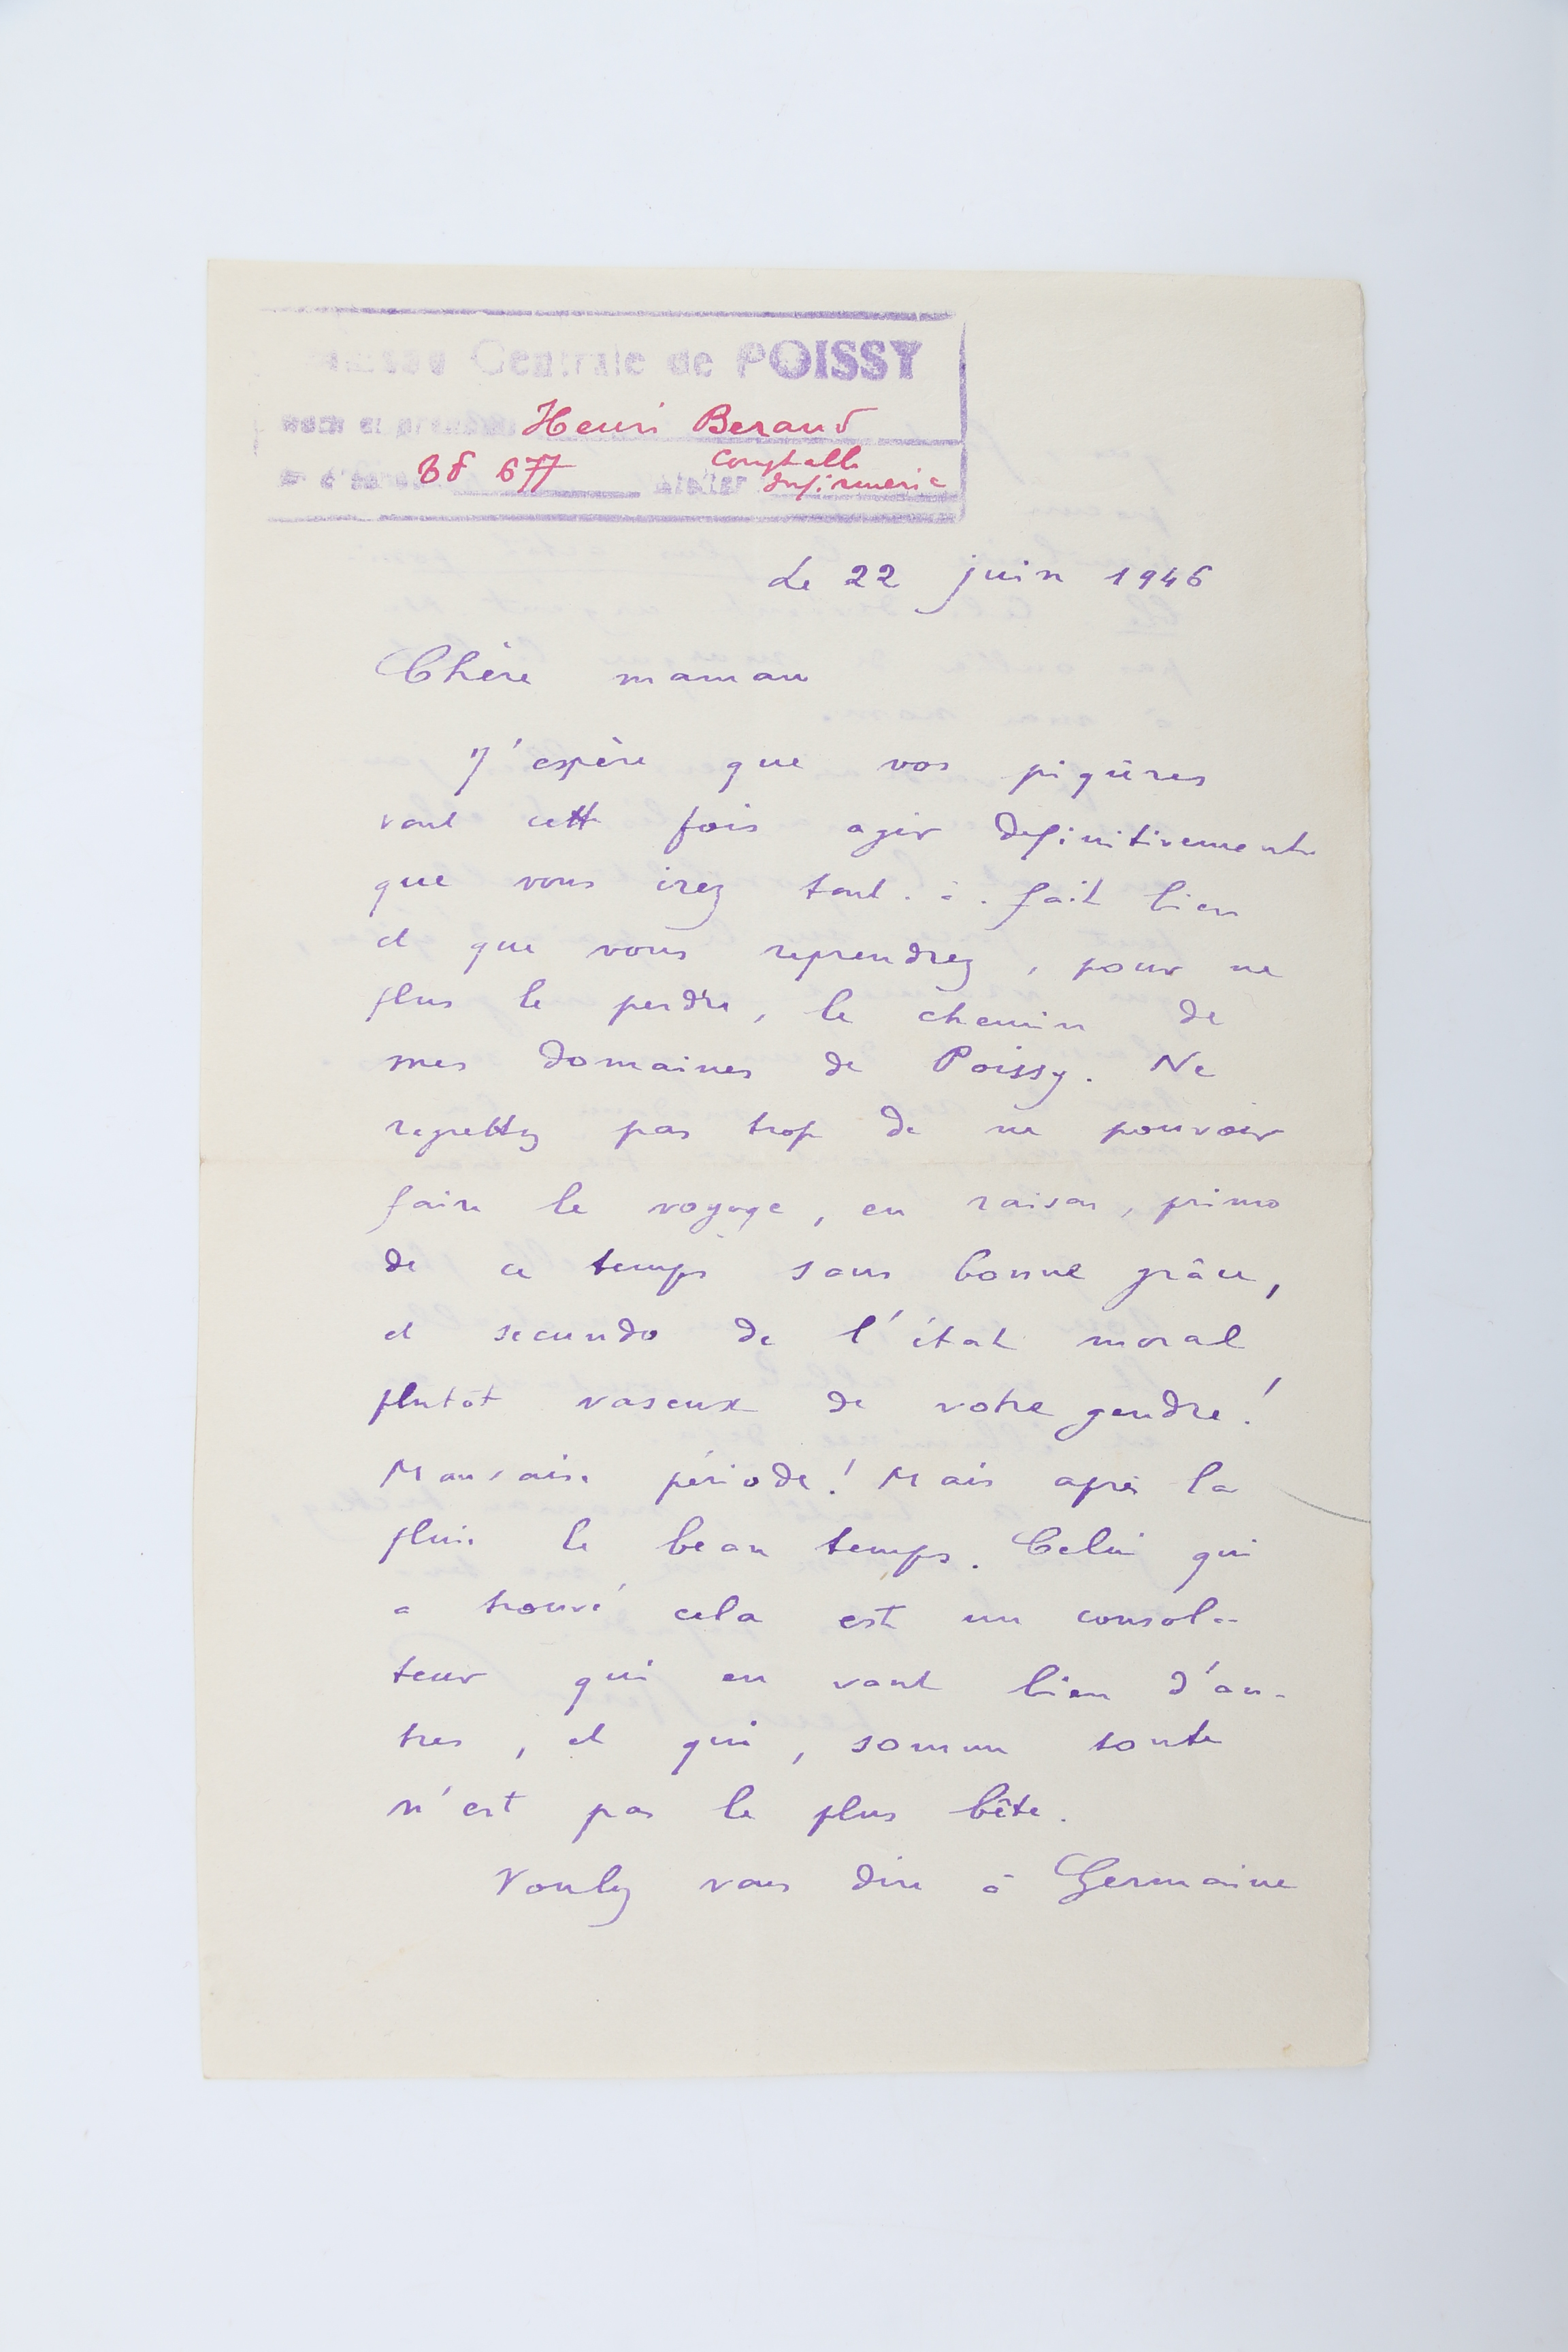 Maison Centrale de POISSY
Nom et prénoms Henri Beraud
N° d'écrou 38 677 Atelier Comptable
Infirmerie
Le 22 juin 1946
Chère maman
J'espère que vos piqûres
vont cette fois agir definitivement
que vous irez tout-à-fait bien
et que vous reprendrez, pour ne
plus le perdre, le chemin de
mes domaines de Poissy. Ne
regrettez pas trop de ne pouvoir
faire le voyage, en raison, primo
de ce temps sans bonne grâce,
et secundo de l'état moral
plutôt vaseux de votre gendre!
Mauvaise période! Mais après la
pluie le beau temps. Celui qui
a trouvé cela est un consola-
teur qui en vaut bien d'au-
tres, et qui, somme toute
n'est pas le plus bête.
Voulez vous dire à Germaine